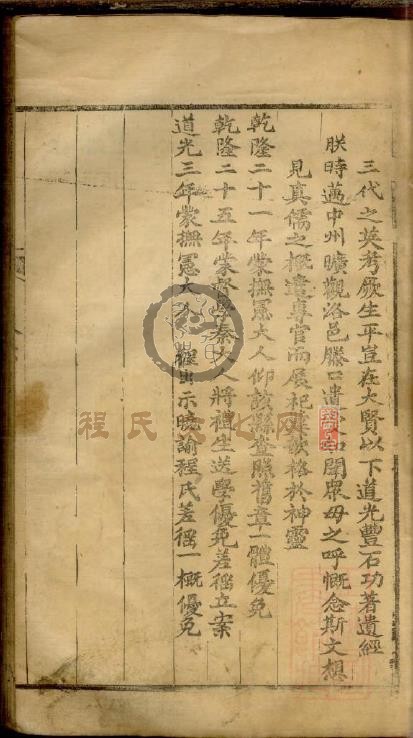 三代之英考厥生平豈在大賢以下道光豐石功著遺經
朕時邁中州曠觀洛邑勝口遺如聞眾母之呼慨念斯文想
見真儒之概遣專官而展祀庶歆格於神靈
乾隆二十一年蒙撫憲大人仰該縣查照舊章一體優免
乾隆二十五年蒙督學秦大人將禮生送學優免差徭立案
道光三年蒙撫憲大人程出示曉諭程氏差徭一概優免
程氏文化网